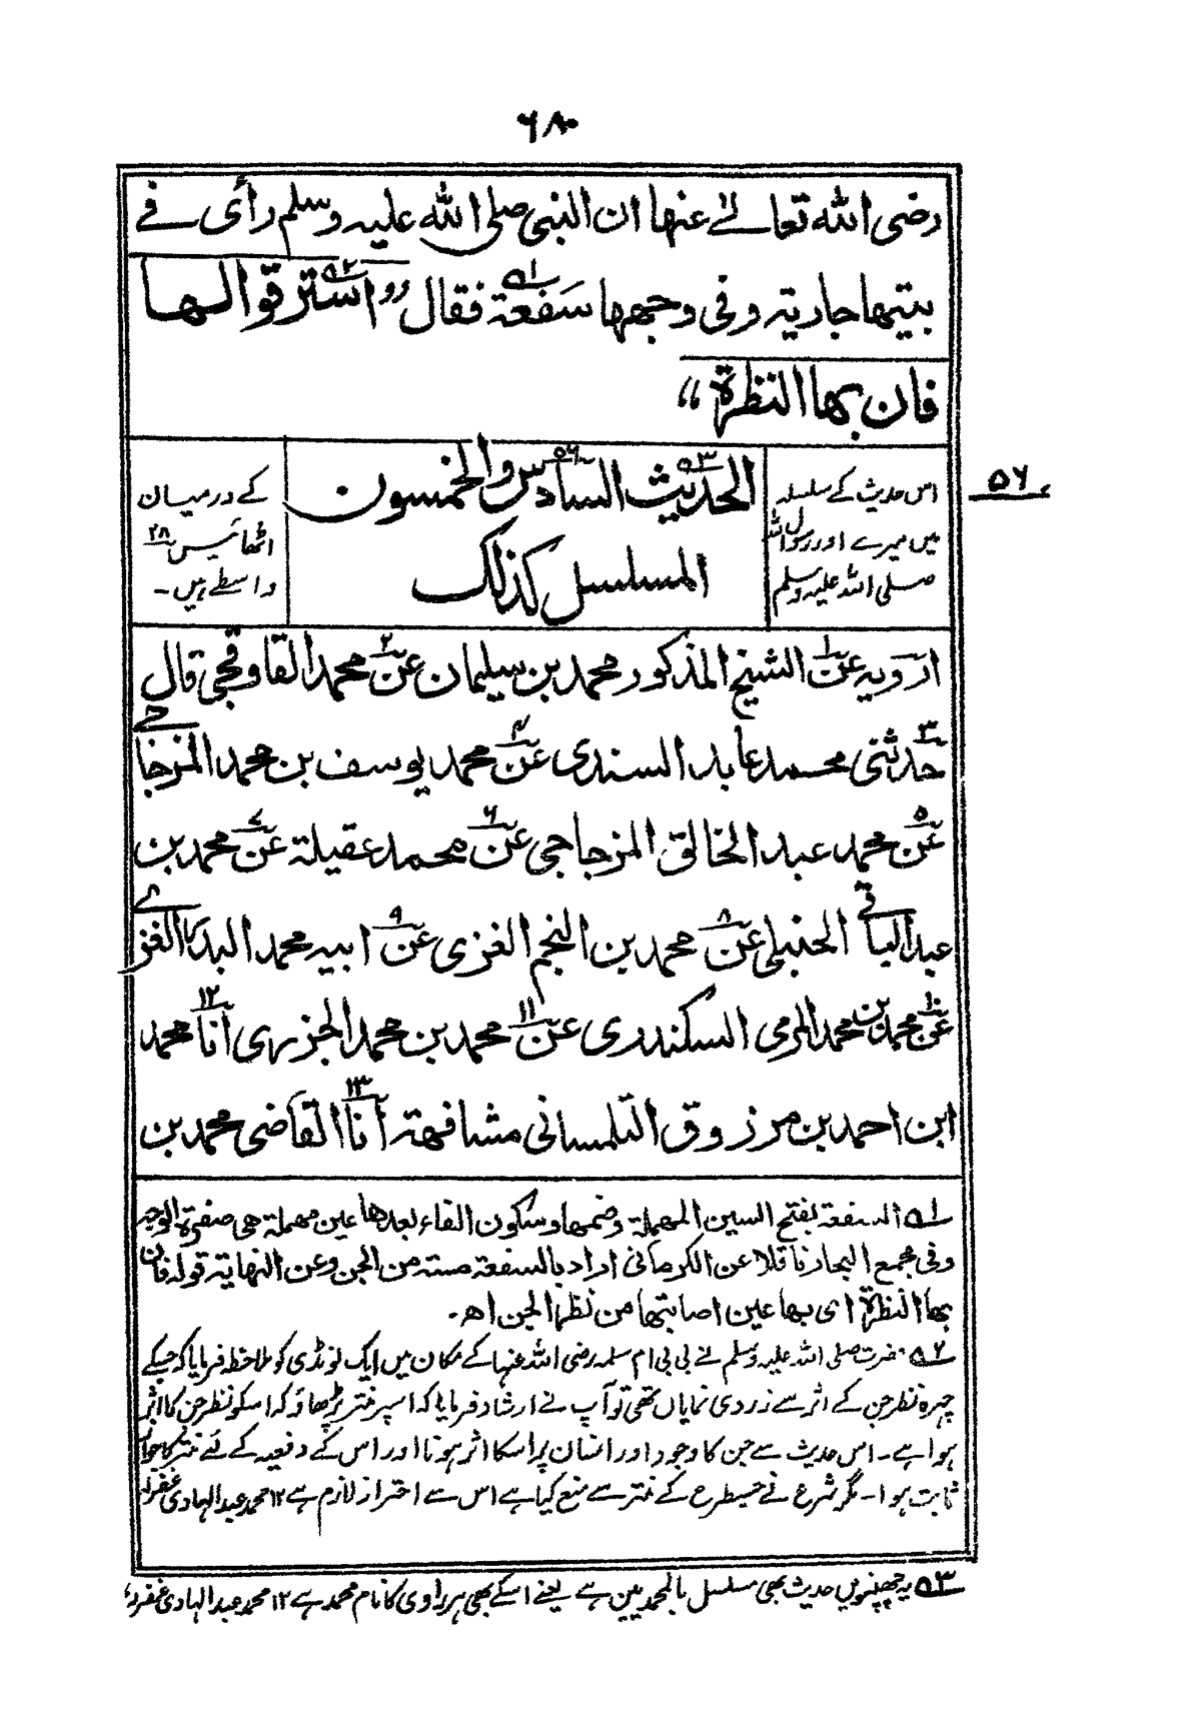 ۶۸۰
رضی اللہ تعالےٰ عنھا ان النبی صلی اللہ علیہ وسلم رأی فے
بیتھا جاریۃ وفی وجھھا سَفعۃ۵۱ فقال ”استرقوا۵۲ لھا
فان بھا النظرۃ“
۵۶
اس حدیث کے سلسلہ
میں میرے اور رسول اللہ
صلی اللہ علیہ وسلم
الحدیث۵۳ السادس۵۶ والخمسون
المسلسل کذلک
کے درمیان
اٹھائیس ۲۸
واسطے ہیں۔
ارویہ عن۱ الشیخ المذکور محمد بن سلیمان عن۲ محمد القاوقجی قال
حدثنی۳ محمد عابد السندی عن۴ محمد یوسف بن محمد المزجاجے
عن۵ محمد عبد الخالق المزجاجی عن۶ محمد عقیلۃ عن۷ محمد بن
عبد الباقے الحنبلی عن۸ محمد بن النجم الغزی عن۹ ابیہ محمد البدر الغزے
عن۱۰ محمد بن محمد المرمی السکندری عن۱۱ محمد بن محمد الجزری أنا۱۲ محمد
ابن احمد بن مرزوق التلمسانی مشافھۃ أنا۱۳ القاضی محمد بن
۵۱ السفعۃ بفتح السین المھملۃ وضمھا وسکون الفاء بعدھا عین مھملۃ ھی صفرۃ الوجہ
وفی مجمع البحار ناقلا عن الکرمانی اراد بالسفعۃ مستہ من الجن وعن النھایۃ قولہ فان
بھا النظرۃ ای بھا عین اصابتھا من نظر الجن اھ۔
۵۲ حضرت صلی اللہ علیہ وسلم نے بی بی ام سلمہ رضی اللہ عنہا کے مکان میں ایک لونڈی کو ملاحظہ فرمایا کہ جسکے
چہرہ نظر جن کے اثر سے زردی نمایاں تھی تو آپ نے ارشاد فرمایا کہ اسپر منتر پڑھاؤ کہ اسکو نظر جن کا اثر
ہوا ہے۔ اس حدیث سے جن کا وجود اور انسان پر اسکا اثر ہونا اور اس کے دفعیہ کے لئے منتر کا جواز
ثابت ہوا۔ مگر شرع نے جسطرح کے منتر سے منع کیا ہے اس سے احتراز لازم ہے ۱۲ محمد عبد الہادی غفرلہ
۵۳ یہ چھپنویں حدیث بھی مسلسل بالمحمدیین ہے یعنے اسکے بھی ہر راوی کا نام محمد ہے ۱۲ محمد عبد الہادی غفرلہ